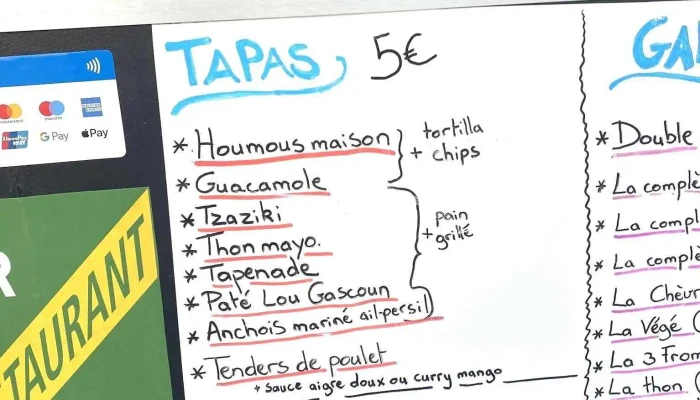 TAPAS 5€
* Houmous maison
* Guacamole
+ tortilla chips
* Tzaziki
* Thon mayo.
* Tapenade
* Paté Lou Gascoun
* Anchois mariné ail-persil
+ pain grillé
* Tenders de poulet
+ sauce aigre doux ou curry mango
GAL
* Double
* La complè
* La compl
* La complè
* La Chèvr
* La Végé (
* La 3 From
* La thon (
mastercard
maestro
UnionPay
G Pay
Apple Pay
R
TAURANT